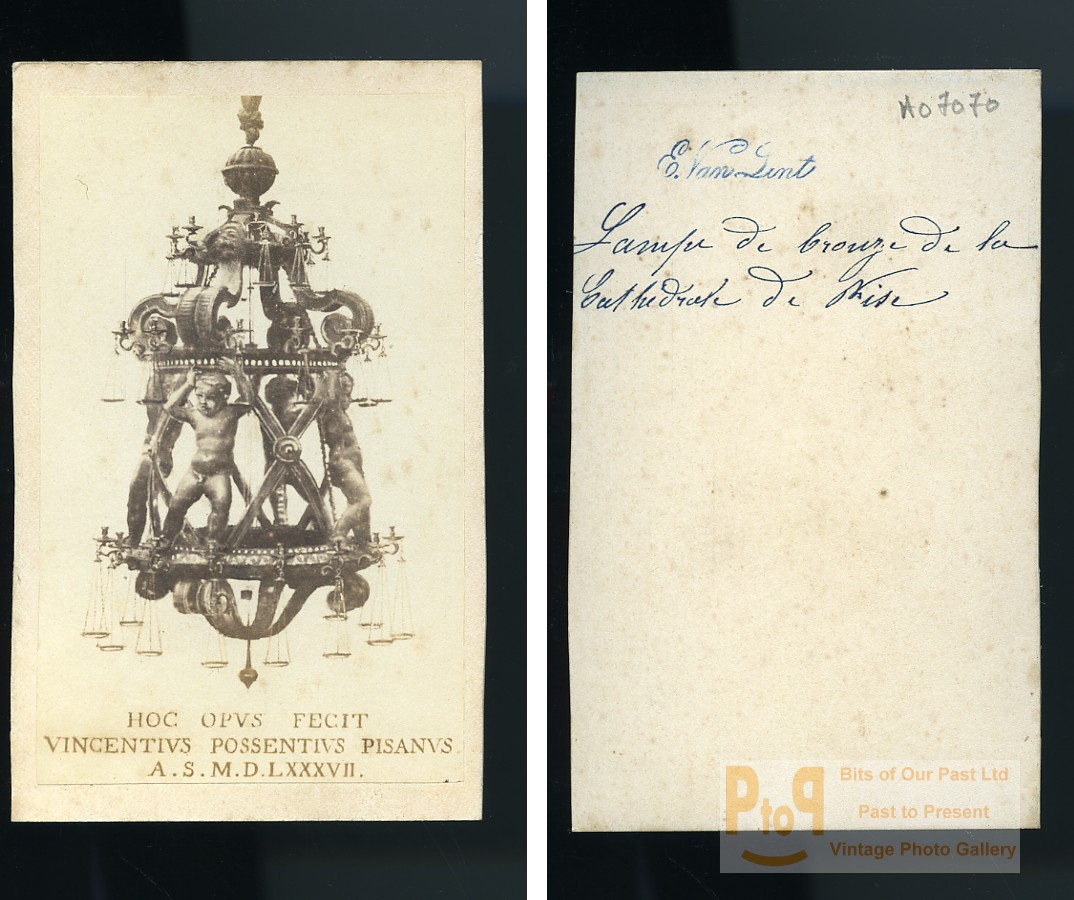 HOC OPVS FECIT
VINCENTIVS POSSENTIVS PISANVS.
A.S.M.D.LXXXVII.
A07070
E. Van Lint
Lampe de bronze de la
Cathedrale de Pise
PtoP
Bits of Our Past Ltd
Past to Present
Vintage Photo Gallery